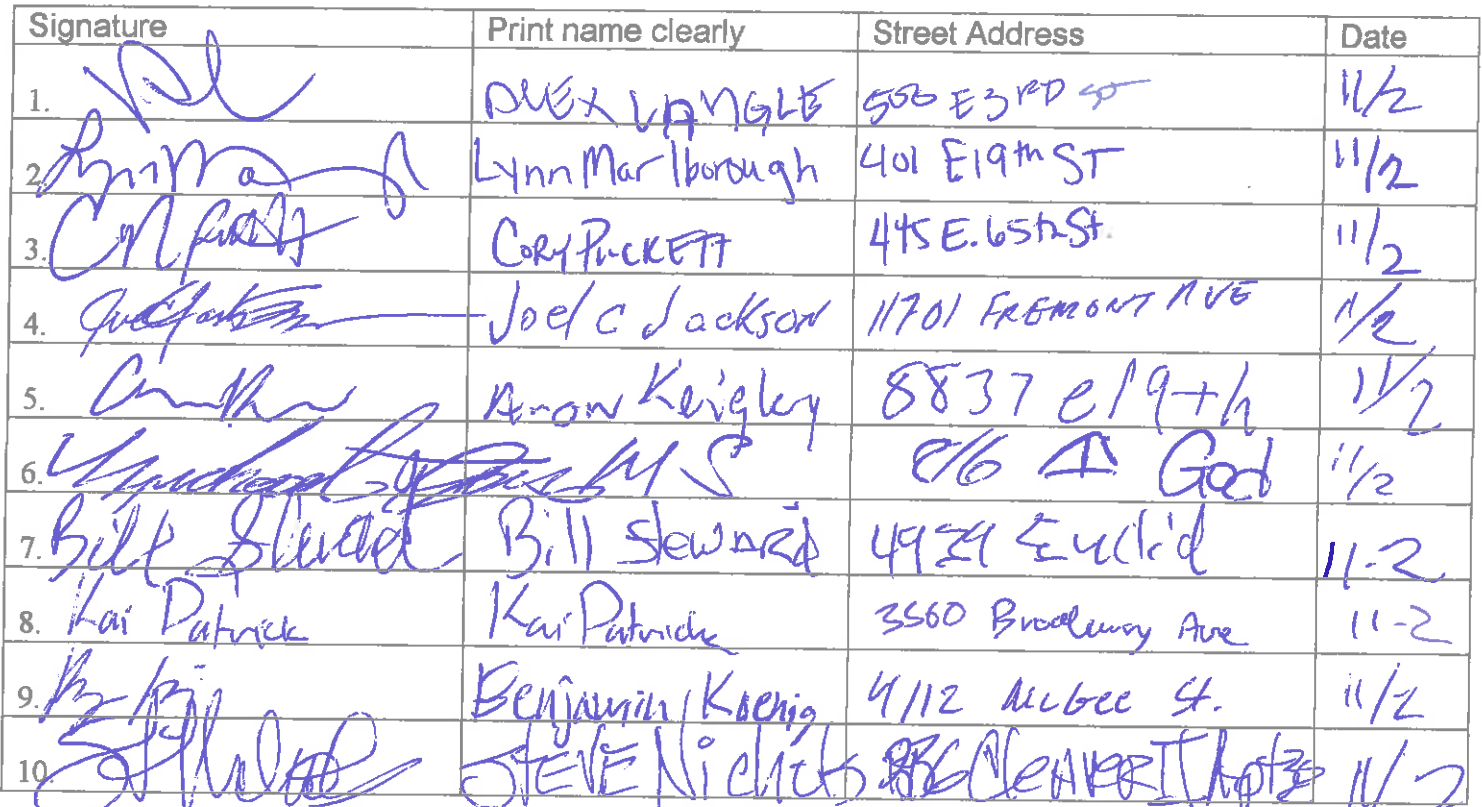 Signature Print name clearly Street Address Date
1. ALEX LANGLE E 3RD ST 11/2
2. Lynn Marlborough 401 E 19th ST 11/2
3. CORY PUCKETT 445 E. 65th St. 11/2
4. Joel C Jackson 11701 FREMONT AVE 11/2
5. Aron Keigley 8837 e 19th 11/2
6. God 11/2
7. Bill Steward Bill Steward Euclid 11-2
8. Kai Patrick Kai Patrick 3560 Broadway Ave 11-2
9. Benjamin Koenig 4112 McGee St. 11/2
10. STEVE CleAVER II Apt 11/2